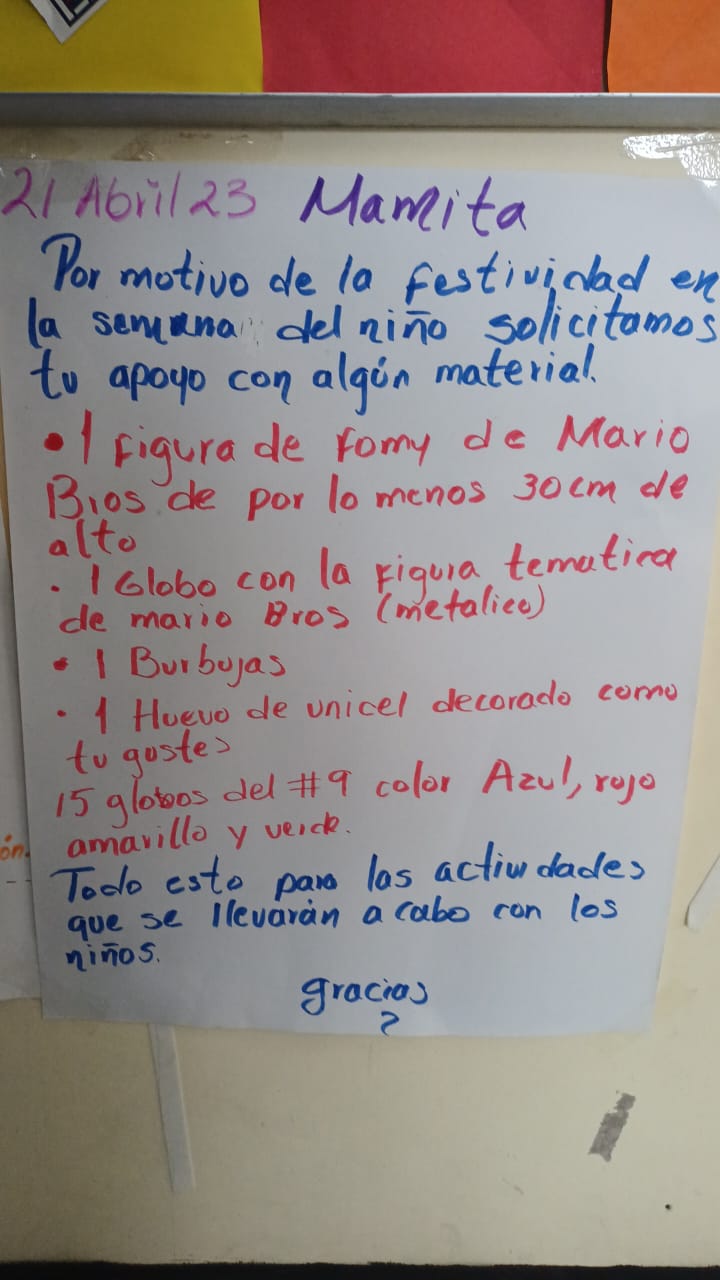 21 Abril 23 Mamita
Por motivo de la festividad en
la semana del niño solicitamos
tu apoyo con algún material.
• 1 Figura de Fomy de Mario
Bros de por lo menos 30cm de
alto
. 1 Globo con la Figura tematica
de mario Bros (metalico)
• 1 Burbujas
. 1 Huevo de unicel decorado como
tu gustes
15 globos del #9 color Azul, rojo
amarillo y verde.
Todo esto para las actividades
que se llevarán a cabo con los
niños.
gracias
ón.